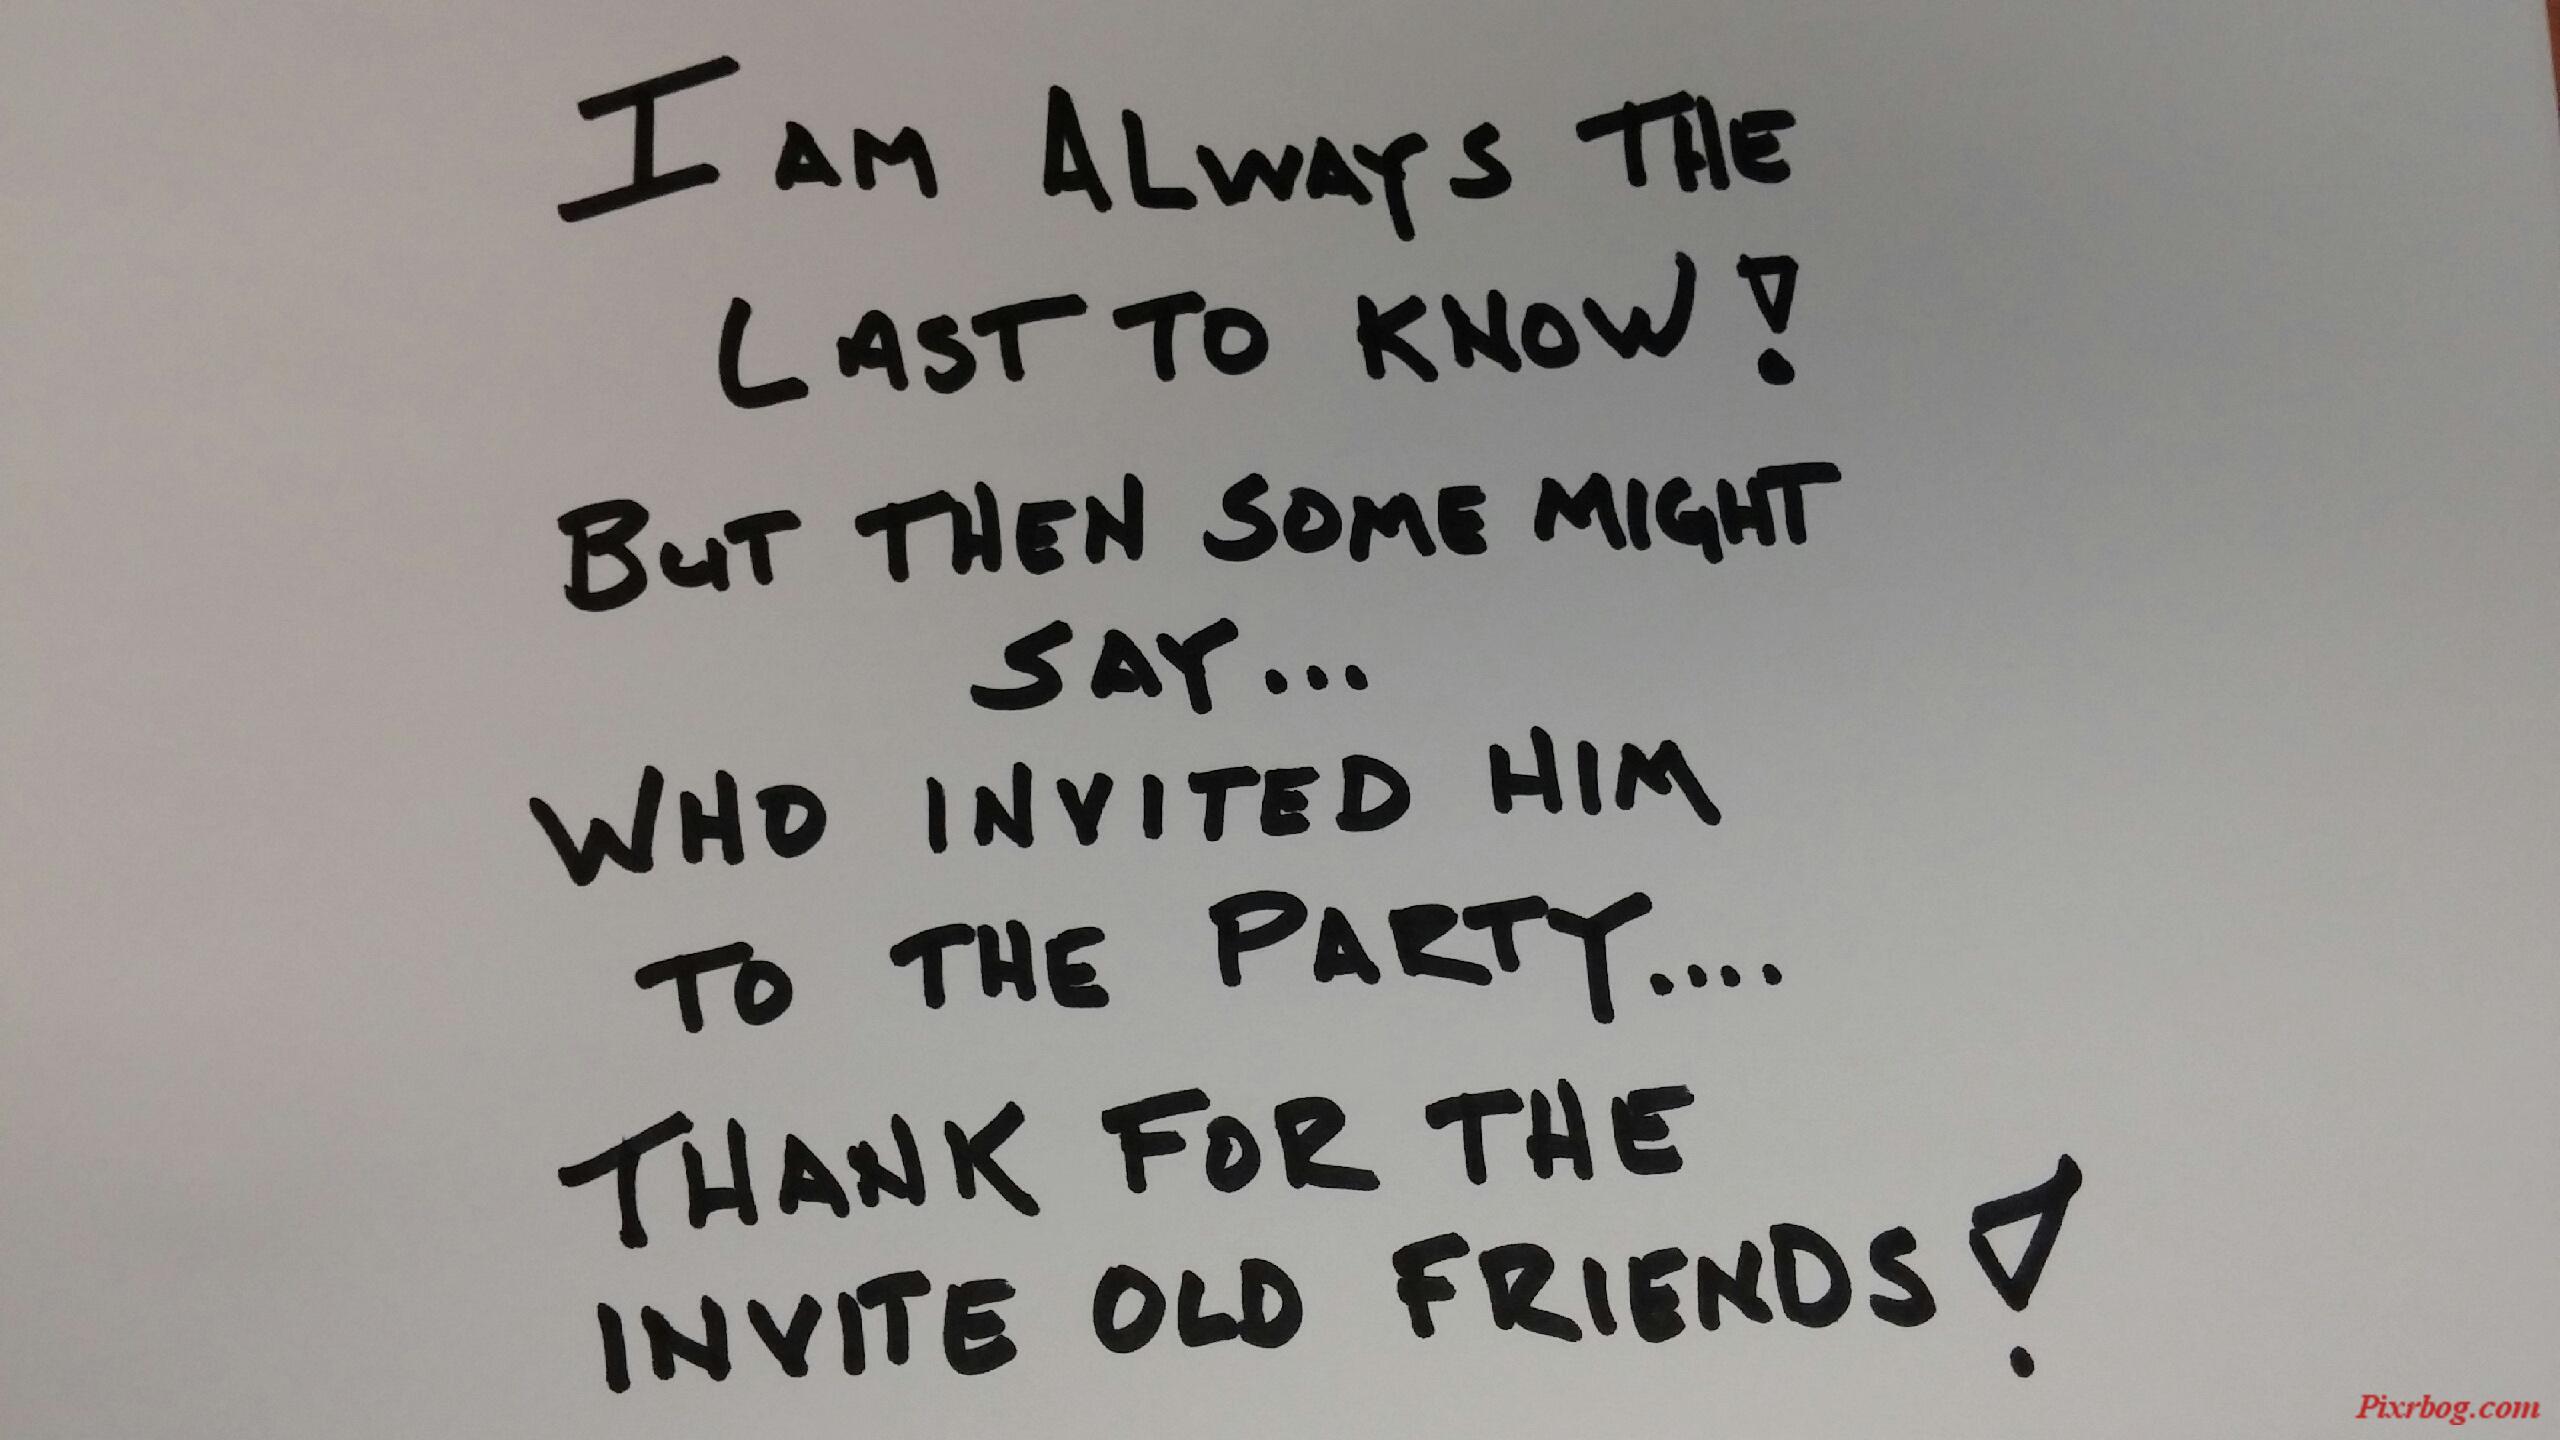 I AM ALWAYS THE
LAST TO KNOW!
BUT THEN SOME MIGHT
SAY...
WHO INVITED HIM
TO THE PARTY....
THANK FOR THE
INVITE OLD FRIENDS!
Pixrbog.com